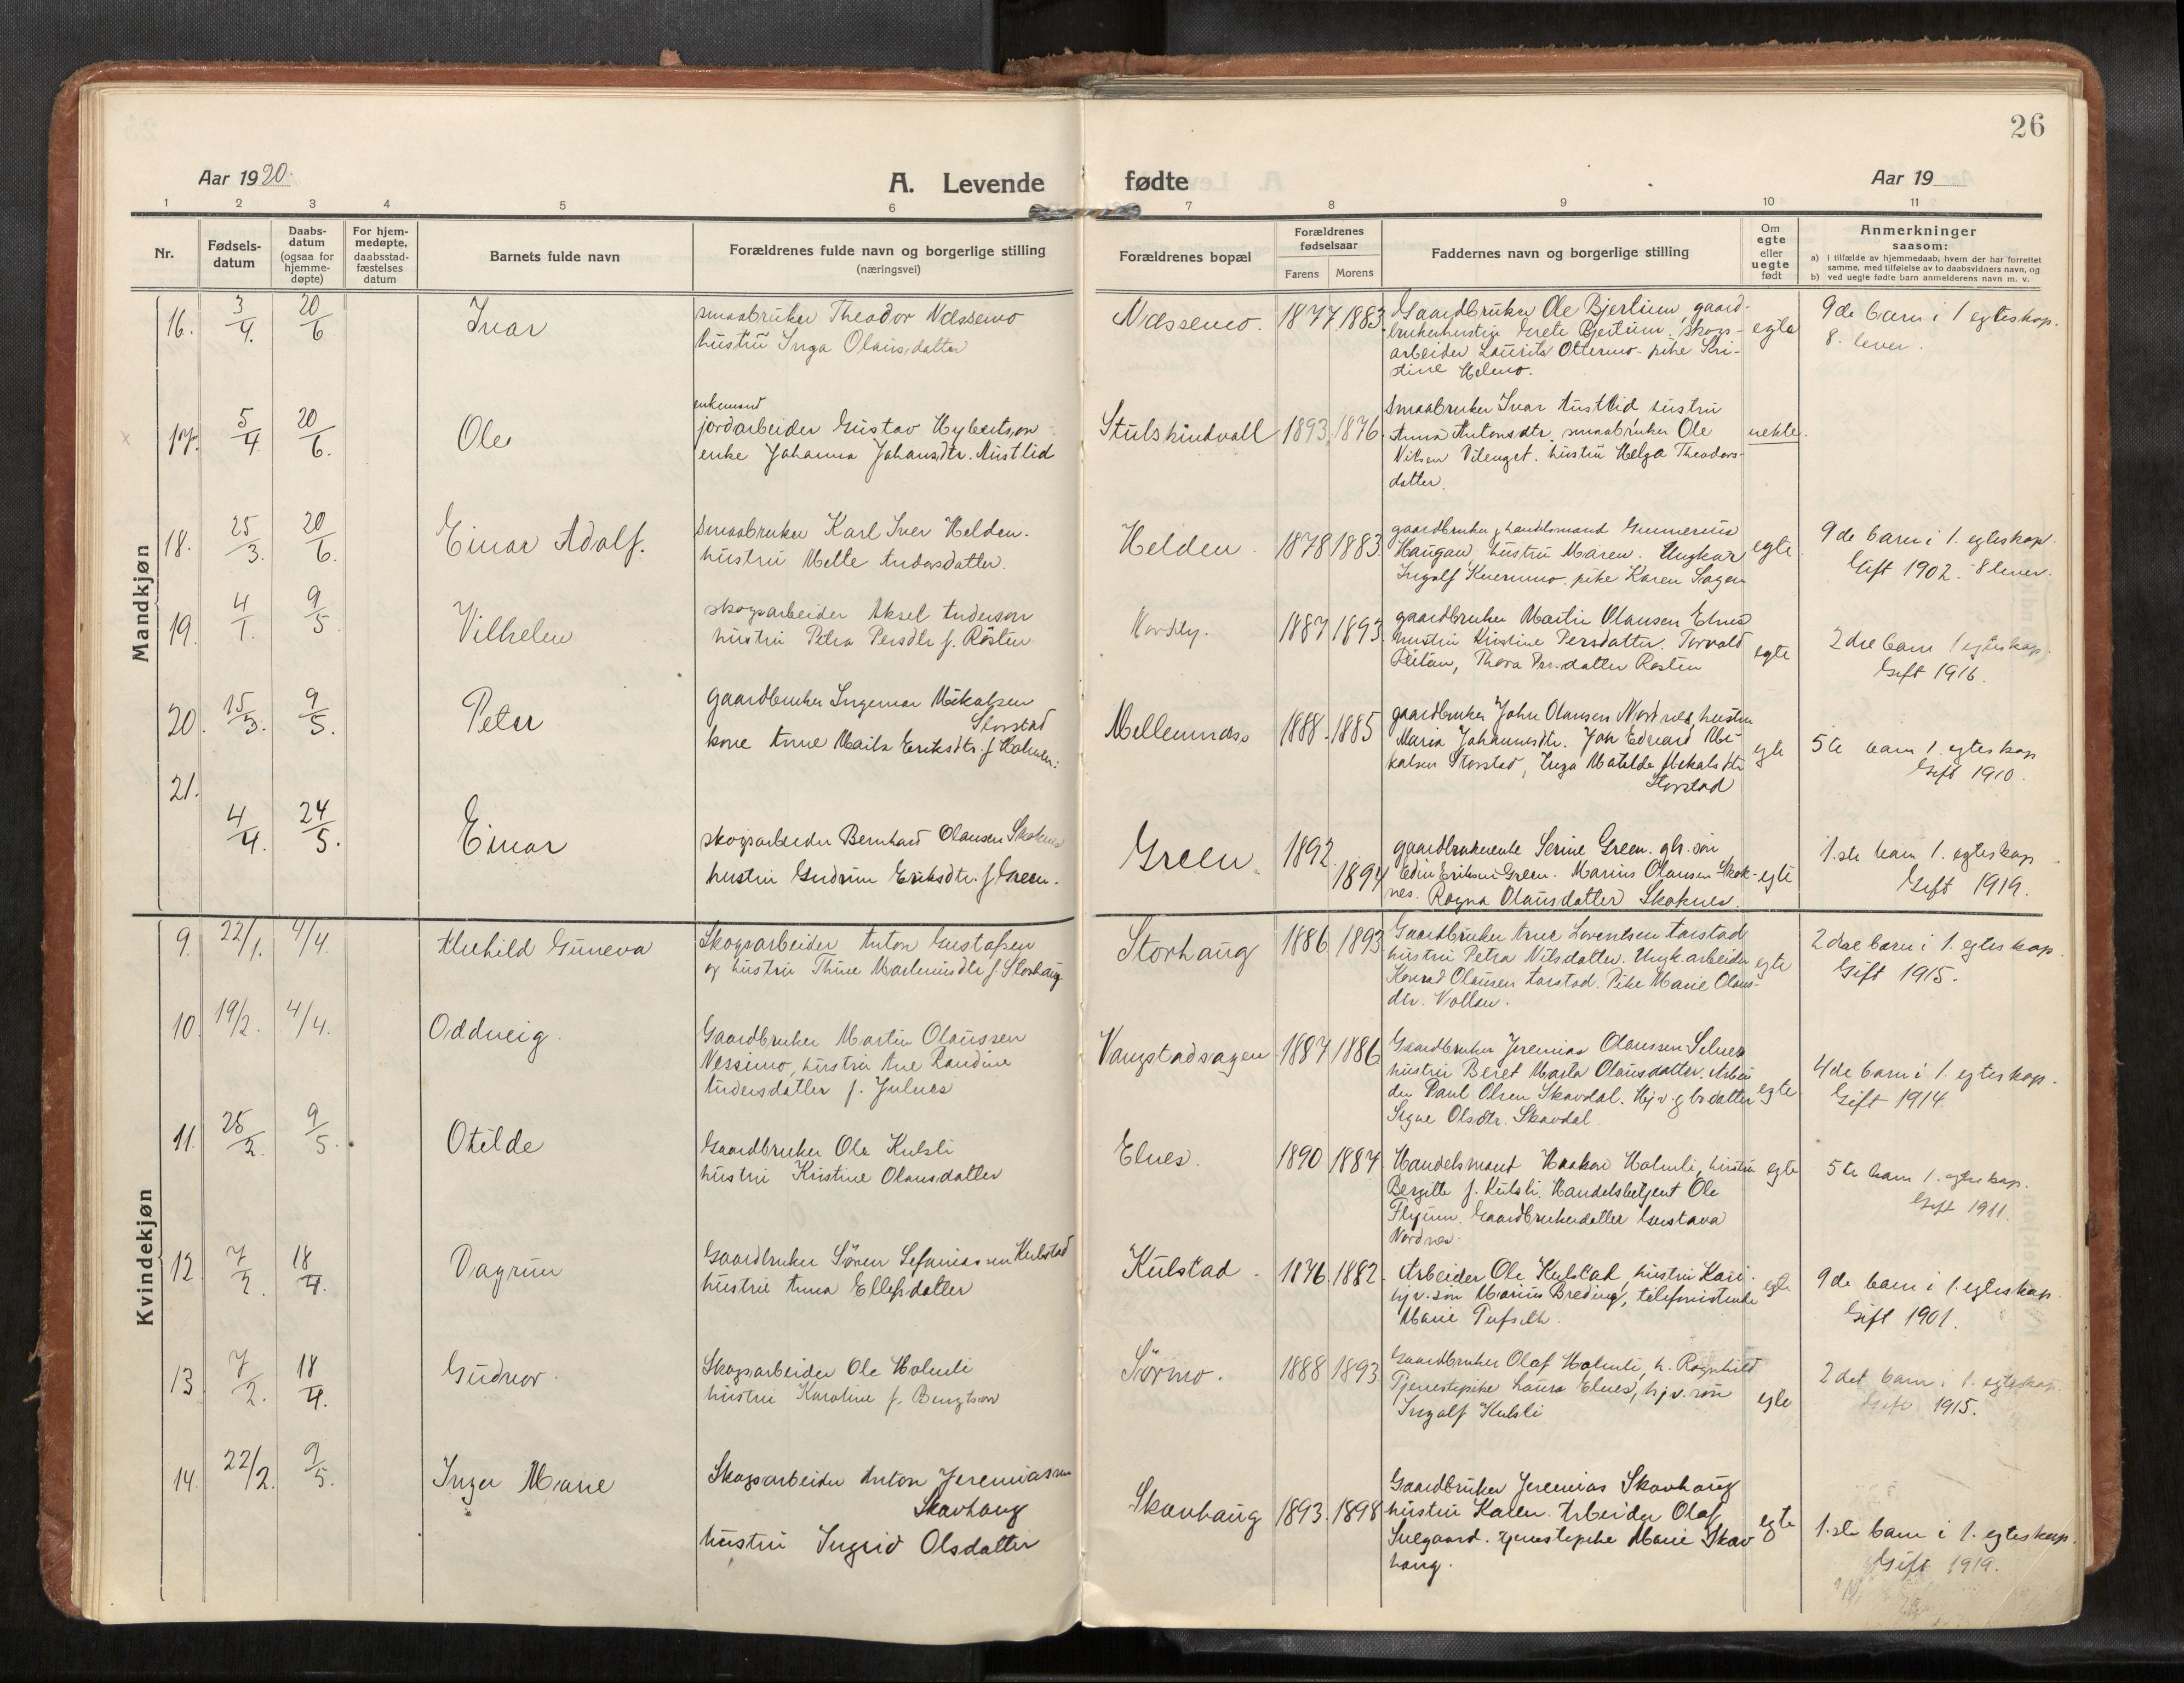 26
Aar 1920.
A. Levende
fødte
Aar 19
1 2 3 4 5 6 7 8 9 10 11
Nr.
Fødsels-
datum
Daabs-
datum
(ogsaa for
hjemme-
døpte)
For hjem-
medøpte,
daabsstad-
fæstelses
datum
Barnets fulde navn
Forældrenes fulde navn og borgerlige stilling
(næringsvei)
Forældrenes bopæl
Forældrenes
fødselsaar
Farens Morens
Faddernes navn og borgerlige stilling
Om
egte
eller
uegte
født
Anmerkninger
saasom:
a) i tilfælde av hjemmedaab, hvem der har forrettet
samme, med tilføielse av to daabsvidners navn, og
b) ved uegte fødte barn anmelderens navn m. v.
Mandkjøn
16. 3/4. 20/6 Ivar
smaabruker Theodor Næssemo
hustru Inga Olausdatter
Næssemo. 1877. 1883.
Gaardbruker Ole Bjerlium, gaard-
brukerhustru Grete Bjerlium. Skogs-
arbeider Laurits Ottermo - pike Kri-
stine Helmo.
egte
9de barn i 1 egteskap.
8. lever.
17. 5/4 20/6. Ole
enkemand
jordarbeider Gustav Hybertsson
enke Johanna Johansdtr. Austlid
1893. 1876.
Smaabruker Ivar Austlid hustru
Anna Antonsdtr. smaabruker Ole
Nilsen . hustru Helga Theodors-
datter.
uekte.
18. 25/3. 20/6. Einar Adolf.
Smaabruker Karl Iver Helden.
hustru Mette Andersdatter.
Helden. 1878 1883.
gaardbruker & handelsmand Gunnerius
Haugan, hustru Maren. Ungkar
Ingolf . pike Karen Sagen
egte
9de barn i 1. egteskap.
Gift 1902. 8 lever.
19. 4/1. 9/5 Vilhelm
skogsarbeider Aksel Anderson
hustru Petra Persdtr f. Rösten
1887 1893.
gaardbruker Martin Olausen Elnes
hustru Kristine Persdatter. Torvald
, Thora Persdatter Rosten
egte
2det barn 1 egteskap
Gift 1916.
20. 15/3. 9/5. Peter
gaardbruker Ingemar Mikalsen
Storstad
kone Anne Marta Eriksdtr. f Holmen.
1888. 1885
gaardbruker John Olausen Nordnes, hustru
Maria Johannesdtr. Joh Edvard Mi-
kalsen Storstad, Inga Matilde Mikalsdtr
Storstad
egte
5te barn 1. egteskap
Gift 1910.
21. 4/4. 24/5. Einar
skogsarbeider Bernhard Olausen Skoknes
hustru Gudrun Eriksdtr. f Green.
Green. 1892. 1894
gaardbrukerenke Serine Green. gbr. søn
Edin Eriksen Green. Marius Olausen Skok-
nes. Ragna Olausdatter Skoknes.
egte
1.ste barn 1. egteskap
Gift 1919.
Kvindekjøn
9. 22/1. 4/4. Alvhild Guneva
Skogsarbeider Anton Gustafsen
og hustru Thine f. Storhaug
Storhaug 1886 1893.
Gaardbruker Arne Lorentsen Aarstad
hustru Petra Nilsdatter. Ungk. arbeider
Konrad Olausen Aarstad. Pike Marie Olaus-
dtr. Vollan.
egte
2det barn i 1. egteskap.
Gift 1915.
10. 19/2. 4/4. Oddveig.
Gaardbruker Martin Olaussen
Nessimo, hustru Ane Randine
Andersdatter f. Julnes
Vangstadsagen 1887 1886
Gaardbruker Jeremias Olaussen Selnes
hustru Beret Marta Olausdatter. Arbei
der Paul Olsen Skavdal. Hjv. gbr datter
Signe Olsdtr. Skavdal
egte
4de barn i 1. egteskap.
Gift 1914.
11. 28/2. 9/5. Otilde
Gaardbruker Ole Kulsli
hustru Kristine Olausdatter
Elnes. 1890 1887
Handelsmand Haakon Holmli, hustru
Bergitte f. Kulsli. Handelsbetjent Ole
Flyum. Gaardbrukerdatter Gustava
Nordnes.
egte
5te barn 1. egteskap.
Gift 1911.
12 7/2. 18/4. Dagrun
Gaardbruker Sören Sefaniassen Kulstad
hustru Anna Ellefsdatter
Kulstad. 1876. 1882.
Arbeider Ole Kulstad, hustru Kari.
hjv. søn Marius Breding, telefonistinde
Marie
egte
9de barn i 1. egteskap.
Gift 1901.
13 7/2. 18/4. Gudvor.
Skogsarbeider Ole Holmli
hustru Karoline f. Bengtson
Sörmo. 1888 1893
Gaardbruker Olaf Holmli, h. Ragnhild
Tjenestepike Laura Elnes, hjv. søn
Ingolf Kulsli
egte
2det barn i 1. egteskap
Gift 1915.
14. 22/2. 9/5. Inga Marie
Skogsarbeider Anton Jeremiassen
Skavhaug
hustru Ingrid Olsdatter
Skavhaug 1893. 1898
Gaardbruker Jeremias Skavhaug
hustru Karen. Arbeider Olaf
. tjenestepike Marie Skav
haug.
egte
1.ste barn i 1. egteskap.
Gift 1919.